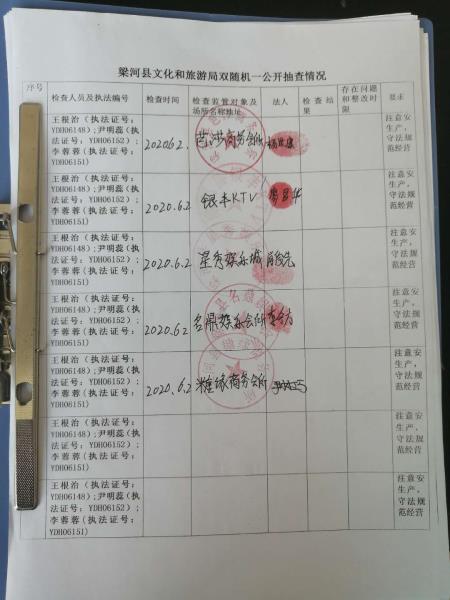 梁河县文化和旅游局双随机一公开抽查情况
序号 检查人员及执法编号 检查时间 检查监管对象及场所名称地址 法人 检查结果 存在问题和整改时限 要求
王根治（执法证号：
YDH06148）;尹明蕊（执
法证号：YDH06152）;
李蓉蓉（执法证号：
YDH06151）
2020.6.2.
商务会所
注意安
生产，
守法规
范经营
王根治（执法证号：
YDH06148）;尹明蕊（执
法证号：YDH06152）;
李蓉蓉（执法证号：
YDH06151）
2020.6.2
银丰KTV
注意安
生产，
守法规
范经营
王根治（执法证号：
YDH06148）;尹明蕊（执
法证号：YDH06152）;
李蓉蓉（执法证号：
YDH06151）
2020.6.2
星秀娱乐城
注意安
生产，
守法规
范经营
王根治（执法证号：
YDH06148）;尹明蕊（执
法证号：YDH06152）;
李蓉蓉（执法证号：
YDH06151）
2020.6.2
名鼎娱乐会所
注意安
生产，
守法规
范经营
王根治（执法证号：
YDH06148）;尹明蕊（执
法证号：YDH06152）;
李蓉蓉（执法证号：
YDH06151）
2020.6.2
商务会所
注意安
生产，
守法规
范经营
王根治（执法证号：
YDH06148）;尹明蕊（执
法证号：YDH06152）;
李蓉蓉（执法证号：
YDH06151）
注意安
生产，
守法规
范经营
王根治（执法证号：
YDH06148）;尹明蕊（执
法证号：YDH06152）;
李蓉蓉（执法证号：
YDH06151）
注意安
生产，
守法规
范经营